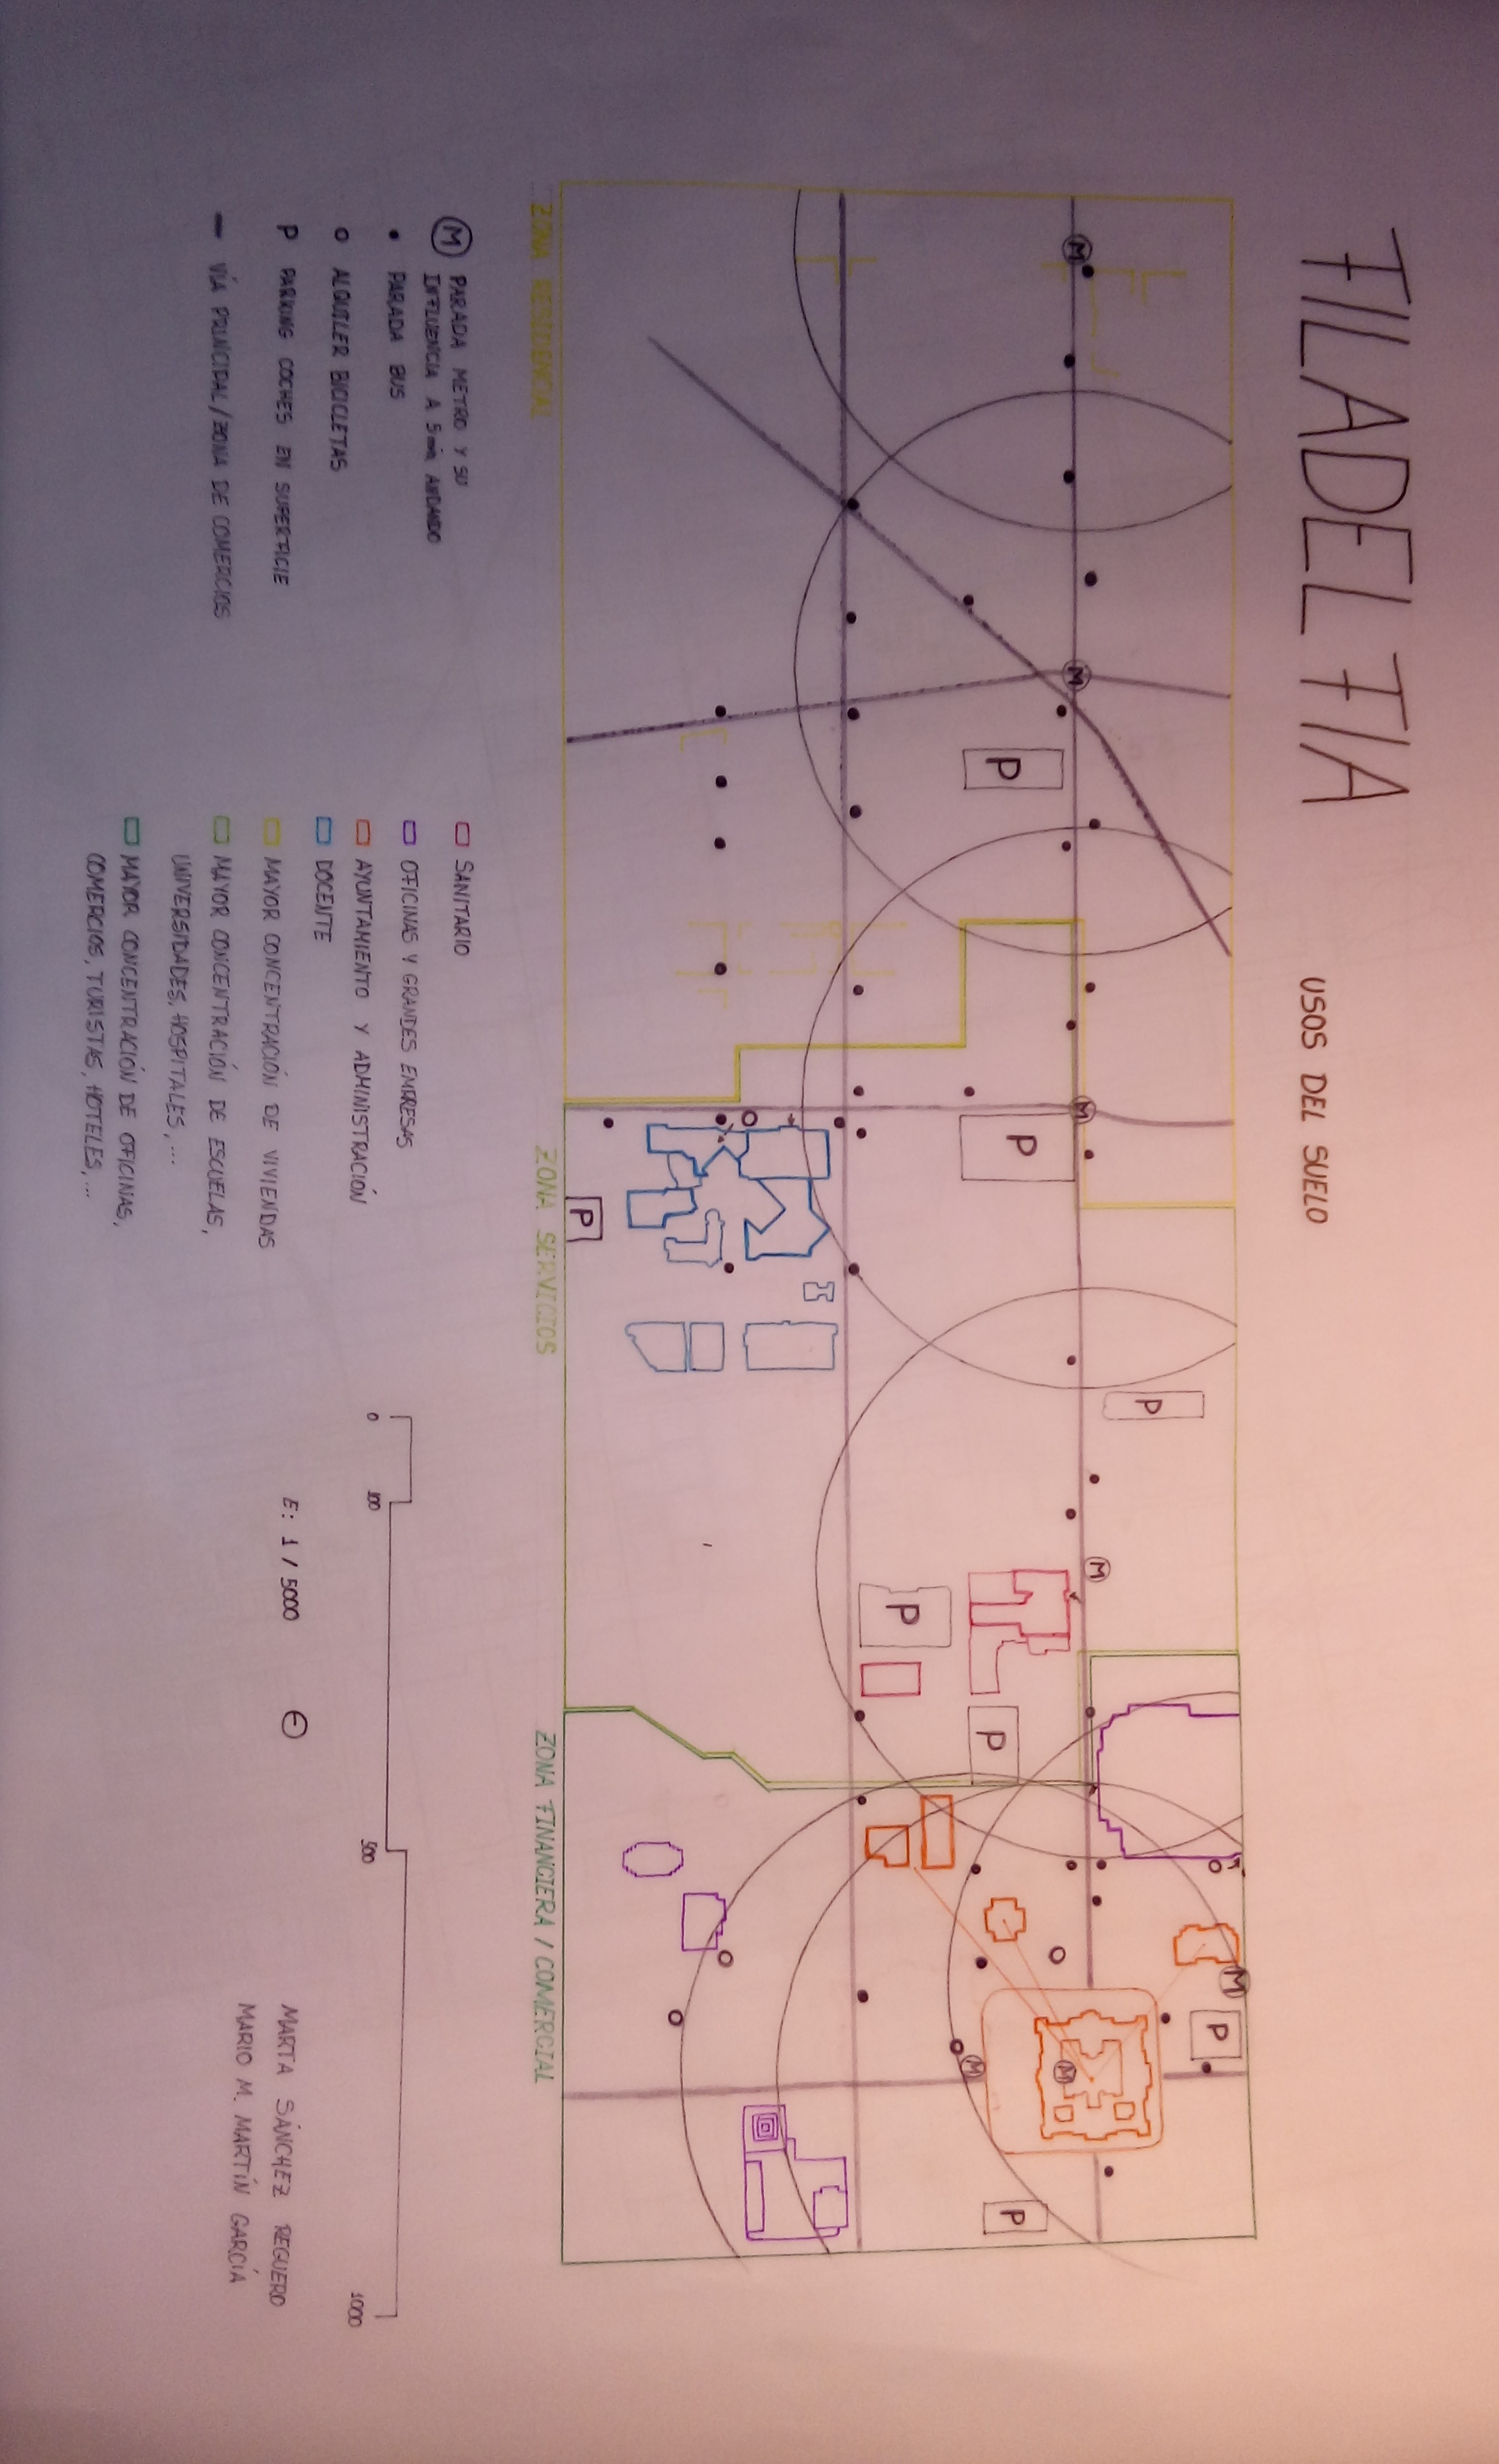 FILADELFIA
USOS DEL SUELO
M
M
M
M
M
M
M
P
P
P
P
P
P
P
P
ZONA RESIDENCIAL
ZONA SERVICIOS
ZONA FINANCIERA / COMERCIAL
M PARADA METRO Y SU
INFLUENCIA A 5 min ANDANDO
• PARADA BUS
o ALQUILER BICICLETAS
P PARKING COCHES EN SUPERFICIE
— VÍA PRINCIPAL / ZONA DE COMERCIOS
SANITARIO
OFICINAS Y GRANDES EMPRESAS
AYUNTAMIENTO Y ADMINISTRACIÓN
DOCENTE
MAYOR CONCENTRACIÓN DE VIVIENDAS
MAYOR CONCENTRACIÓN DE ESCUELAS,
UNIVERSIDADES, HOSPITALES, ...
MAYOR CONCENTRACIÓN DE OFICINAS,
COMERCIOS, TURISTAS, HOTELES, ...
0 100 500 1000
E: 1 / 5000
MARTA SÁNCHEZ REGUERO
MARIO M. MARTÍN GARCÍA